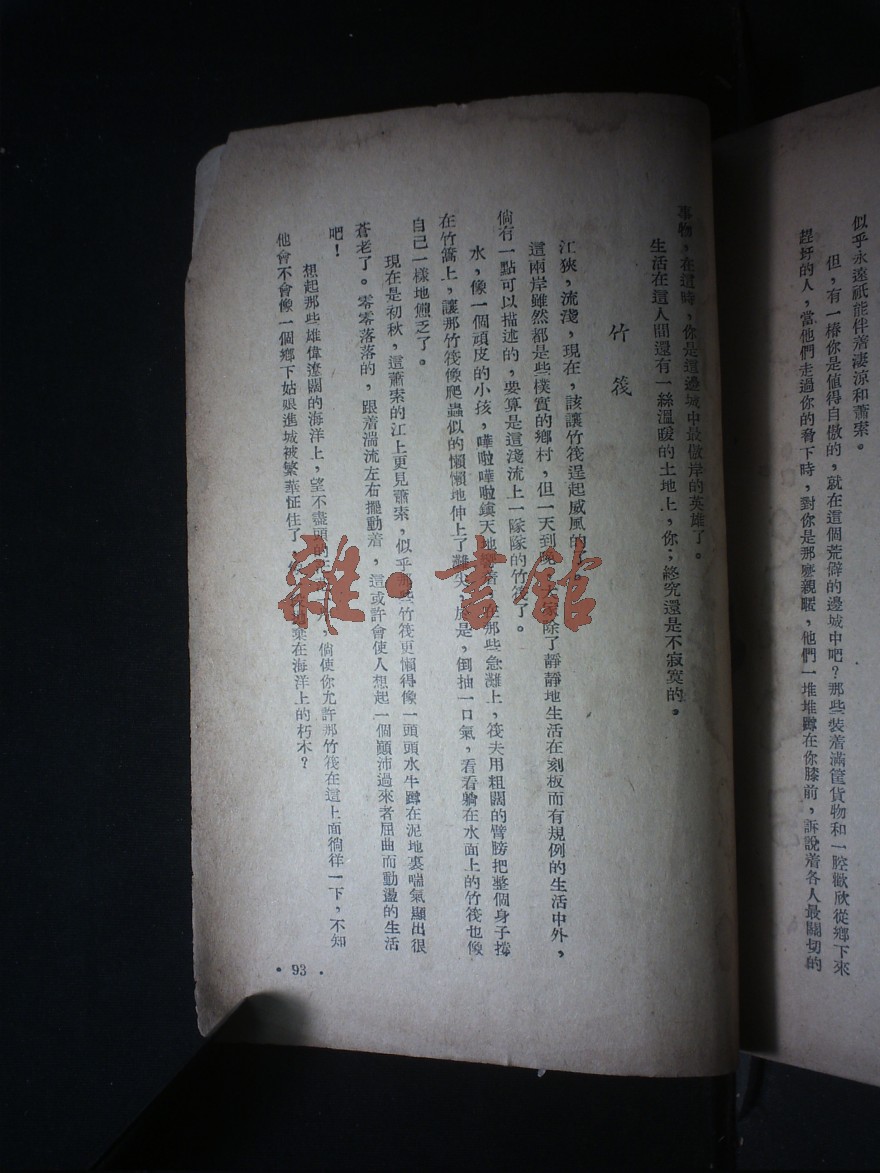 似乎永遠祇能伴着淒涼和蕭索。
但，有一樁你是值得自傲的，就在這個荒僻的邊城中吧？那些裝着滿筐貨物和一腔歡欣從鄉下來
趕圩的人，當他們走過你的脅下時，對你是那麽親暱，他們一堆堆蹲在你膝前，訴說着各人最關切的
事物，在這時，你是這邊城中最傲岸的英雄了。
生活在這人間還有一絲溫暖的土地上，你，終究還是不寂寞的。
竹筏
江狹，流淺，現在，該讓竹筏逞起威風的
這兩岸雖然都是些樸實的鄉村，但一天到晚，除了靜靜地生活在刻板而有規例的生活中外，
倘有一點可以描述的，要算是這淺流上一隊隊的竹筏了。
水，像一個頑皮的小孩，嘩啦嘩啦鎮天地着，在那些急灘上，筏夫用粗闊的臂膀把整個身子撐
在竹篙上，讓那竹筏像爬蟲似的懶懶地伸上了灘尖，於是，倒抽一口氣，看看躺在水面上的竹筏也像
自己一樣地憊乏了。
現在是初秋，這蕭索的江上更見蕭索，似乎那些竹筏更懶得像一頭頭水牛蹲在泥地裏喘氣顯出很
蒼老了。零零落落的，跟着湍流左右擺動着，這或許會使人想起一個顚沛過來者屈曲而動盪的生活
吧！
想起那些雄偉遼闊的海洋上，望不盡頭的，倘使你允許那竹筏在這上面徜徉一下，不知
他會不會像一個鄉下姑娘進城被繁華怔住了，棄在海洋上的朽木？
• 93 •
雜·書館